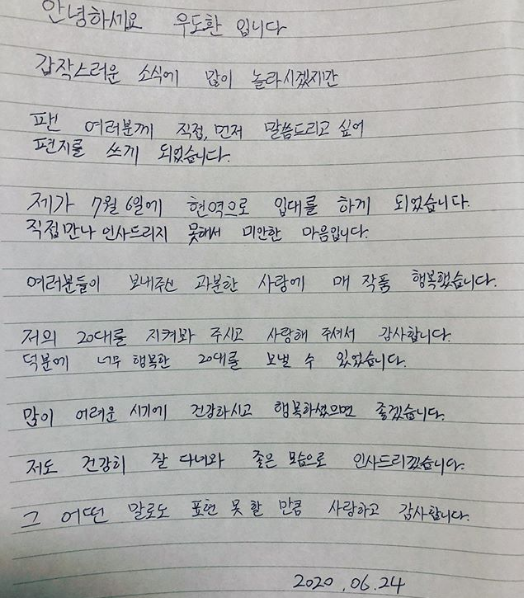 안녕하세요 우도환 입니다
갑작스러운 소식에 많이 놀라시겠지만
팬 여러분께 직접, 먼저 말씀드리고 싶어
편지를 쓰게 되었습니다.
제가 7월 6일에 현역으로 입대를 하게 되었습니다.
직접만나 인사드리지 못해서 미안한 마음입니다.
여러분들이 보내주신 과분한 사랑에 매 작품 행복했습니다.
저의 20대를 지켜봐 주시고 사랑해 주셔서 감사합니다.
덕분에 너무 행복한 20대를 보낼 수 있었습니다.
많이 어려운 시기에 건강하시고 행복하셨으면 좋겠습니다.
저도 건강히 잘 다녀와 좋은 모습으로 인사드리겠습니다.
그 어떤 말로도 표현 못 할 만큼 사랑하고 감사합니다.
2020.06.24